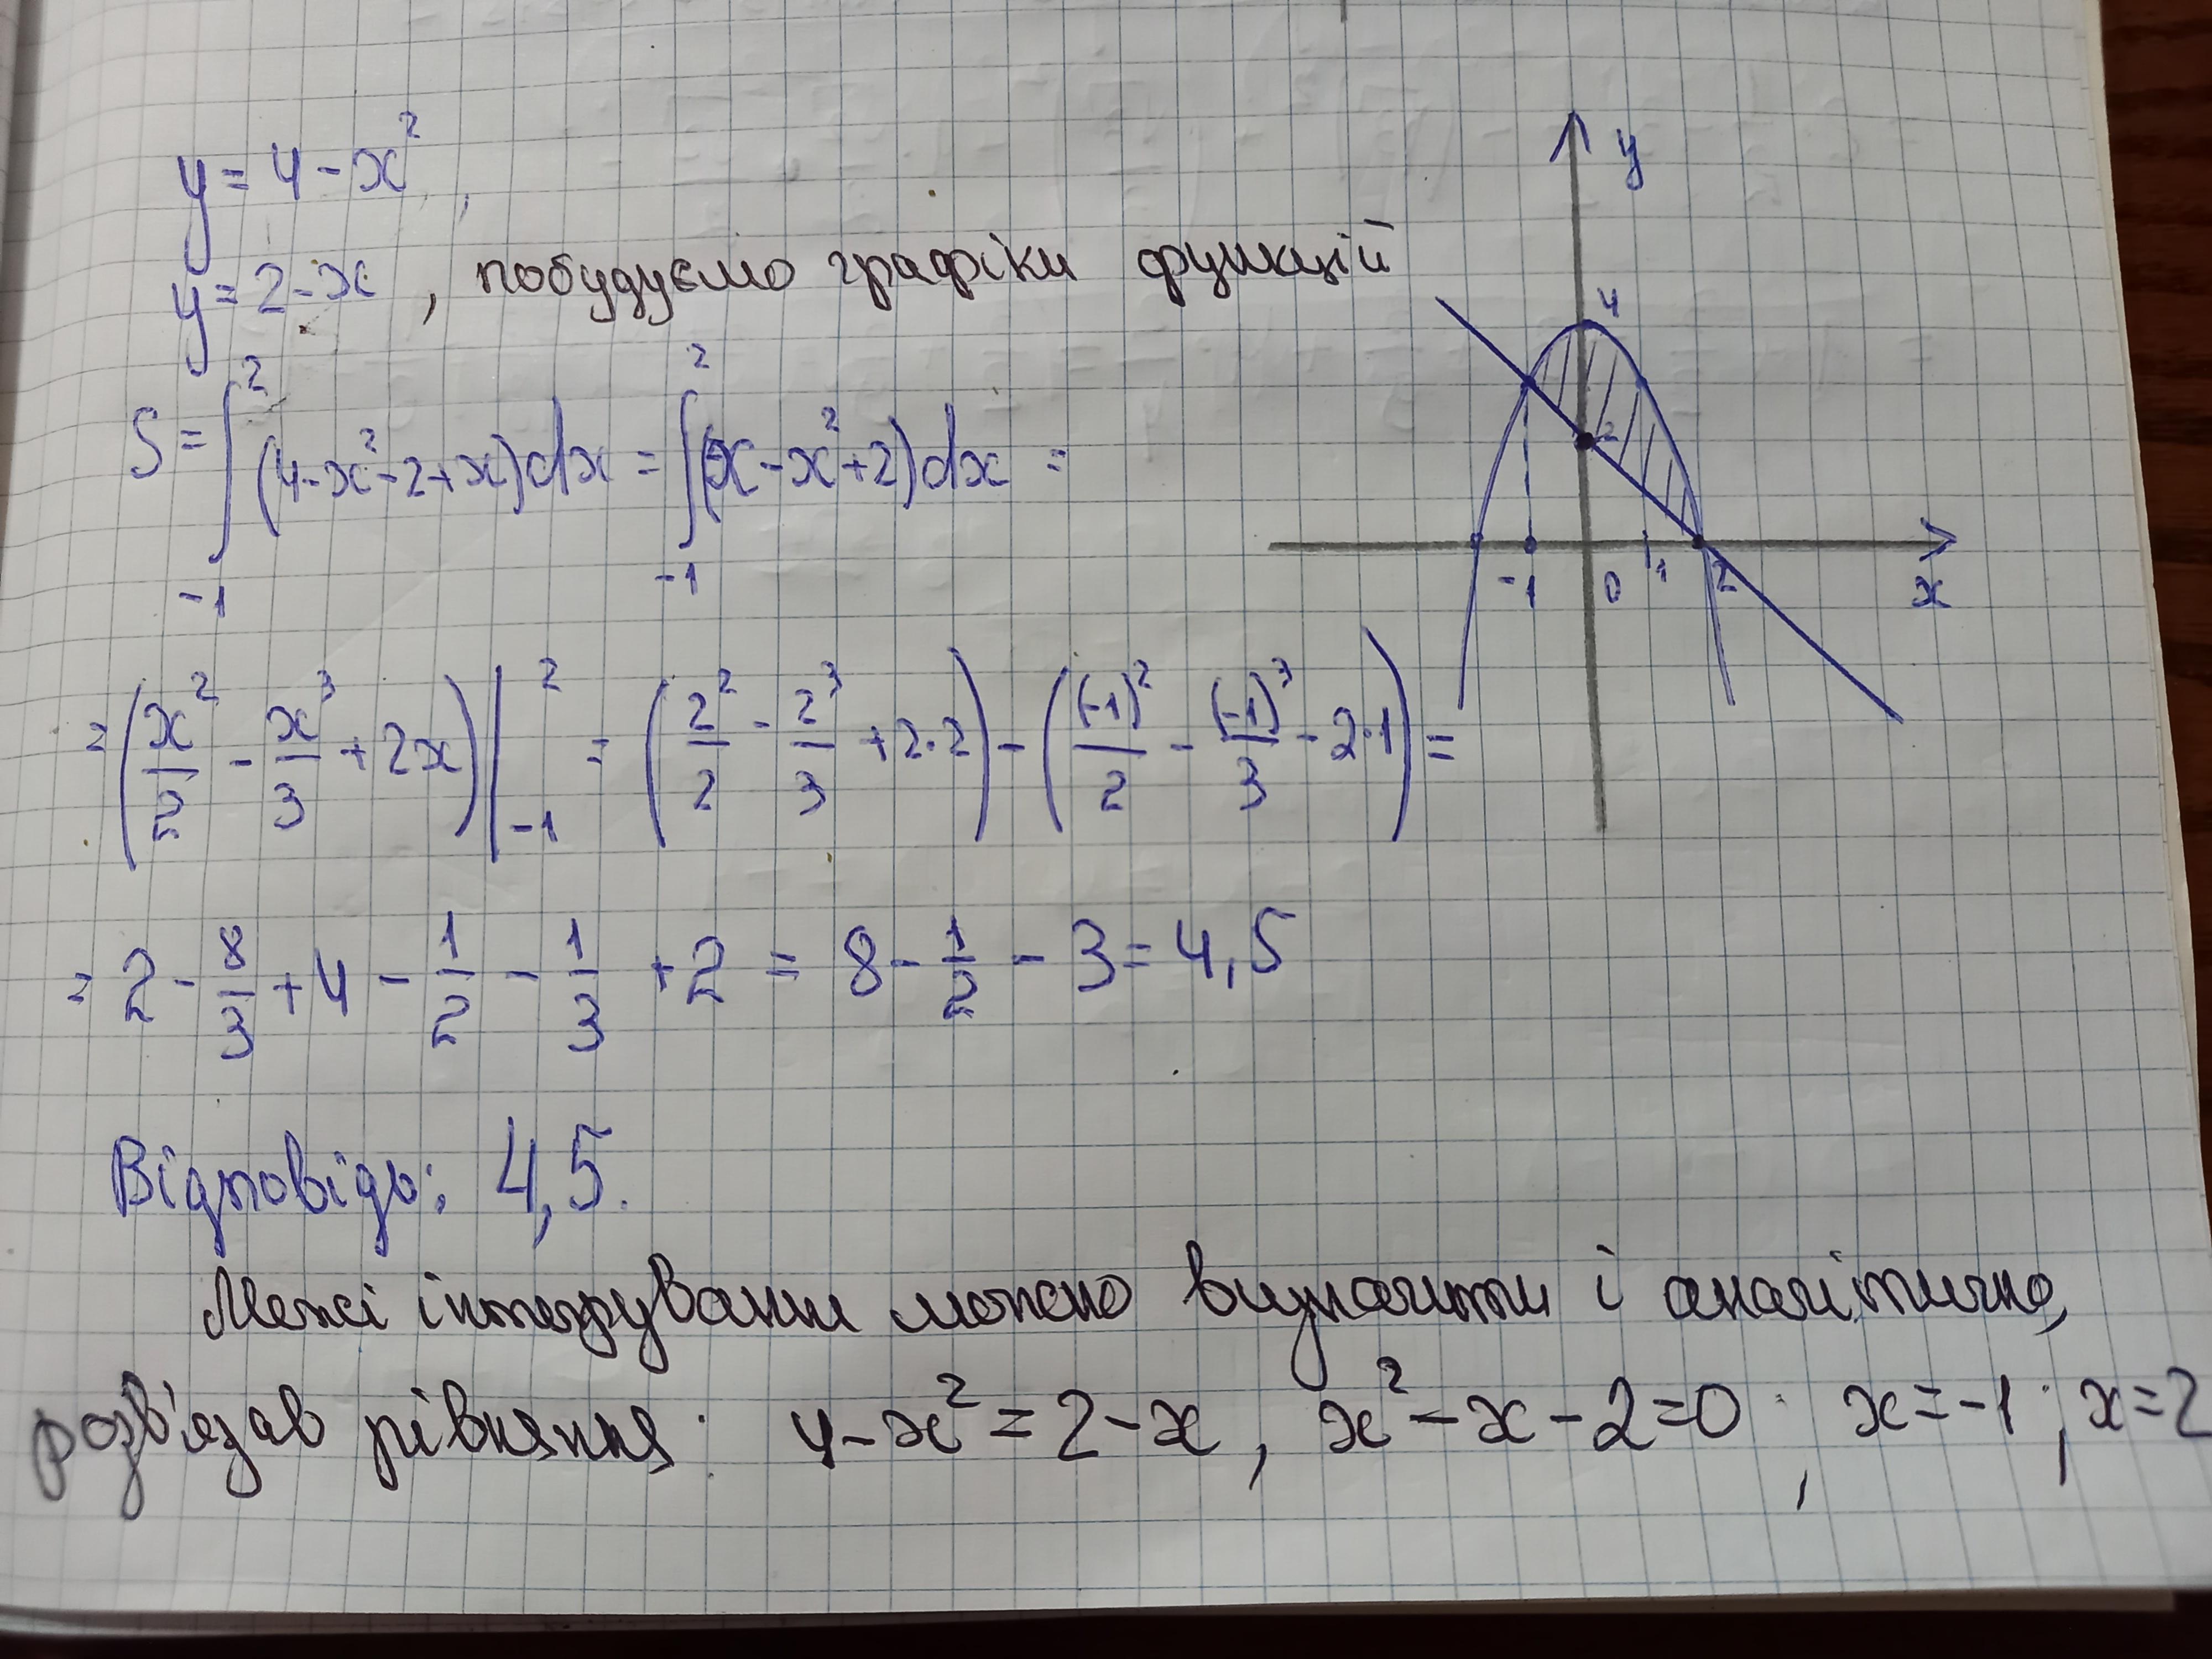 y = 4 - x²,
y = 2 - x, побудуємо графіки функцій
S = ∫₋₁² (4 - x² - 2 + x)dx = ∫₋₁² (x - x² + 2)dx =
= (x²/2 - x³/3 + 2x)|₋₁² = (2²/2 - 2³/3 + 2·2) - ((-1)²/2 - (-1)³/3 - 2·1) =
= 2 - 8/3 + 4 - 1/2 - 1/3 + 2 = 8 - 1/2 - 3 = 4,5
Відповідь: 4,5.
Межі інтегрування можно визначити і аналітично,
розв'язав рівняння: 4 - x² = 2 - x, x² - x - 2 = 0; x = -1; x = 2
y
4
2
-1 0 1 2 x